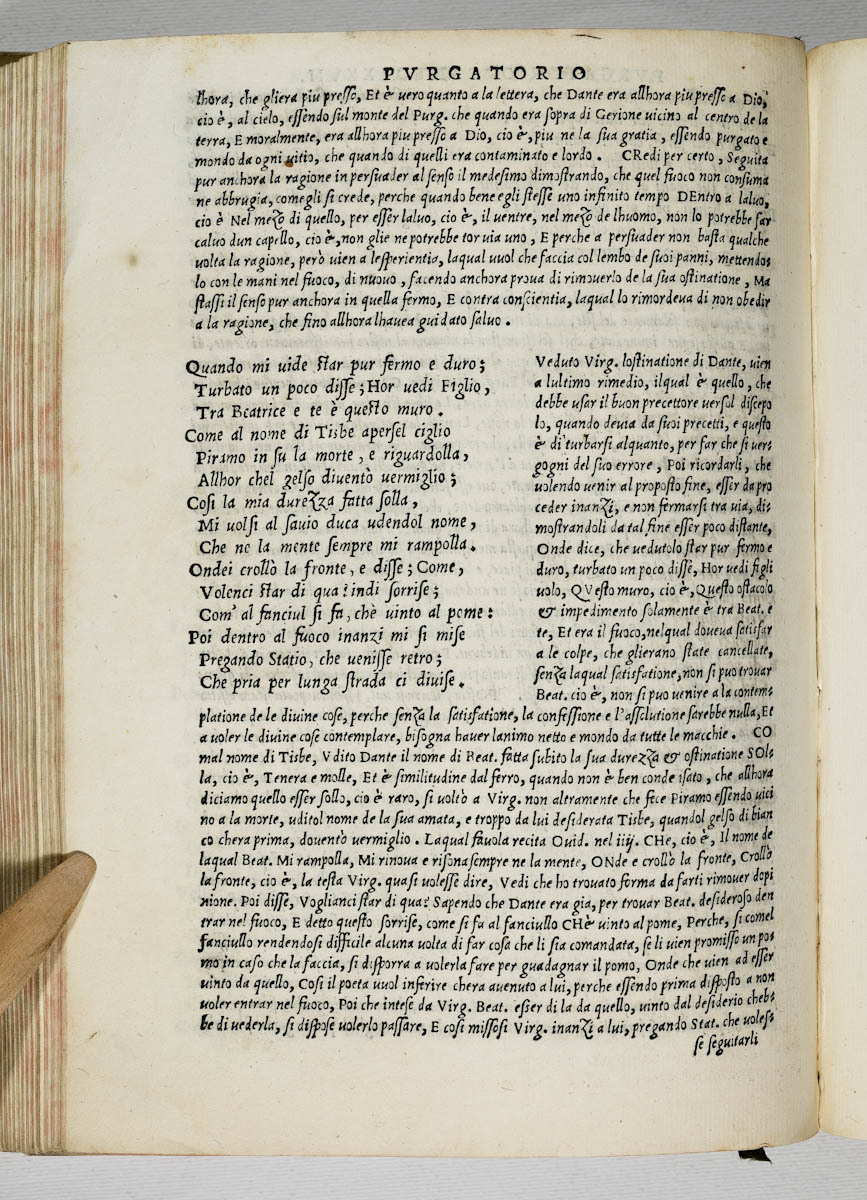 PVRGATORIO
lhora, che gliera piu presso, Et è uero quanto a la lettera, che Dante era allhora piu presso a Dio,
cio è, al cielo, essendo sul monte del Purg. che quando era sopra di Gerione uicino al centro de la
terra, E moralmente, era allhora piu presso a Dio, cio è, piu ne la sua gratia, essendo purgato e
mondo da ogni uitio, che quando di quelli era contaminato e lordo. CRedi per certo, Seguita
pur anchora la ragione in persuader al senso il medesimo dimostrando, che quel fuoco non consuma
ne abbrugia, come gli si crede, perche quando bene egli stesse uno infinito tempo DEntro a laluo,
cio è Nel mezo di quello, per esser laluo, cio è, il uentre, nel mezo de lhuomo, non lo potrebbe far
caluo dun capello, cio è, non glie ne potrebbe tor uia uno, E perche a persuader non basta qualche
uolta la ragione, però uien a lesperientia, laqual uuol che faccia col lembo de suoi panni, mettendo=
lo con le mani nel fuoco, di nuouo, facendo anchora proua di rimouerlo de la sua ostinatione, Ma
stassi il senso pur anchora in quella fermo, E contra conscientia, laqual lo rimordeua di non obedir
a la ragione, che fino allhora lhauea guidato saluo.
Quando mi uide star pur fermo e duro;
Turbato un poco disse; Hor uedi Figlio,
Tra Beatrice e te è questo muro.
Come al nome di Tisbe apersel ciglio
Piramo in su la morte, e riguardolla,
Allhor chel gelso diuentò uermiglio;
Cosi la mia durezza fatta solla,
Mi uolsi al sauio duca udendol nome,
Che ne la mente sempre mi rampolla.
Ondei crollò la fronte, e disse; Come,
Volenci star di qua? indi sorrise;
Com' al fanciul si fa, chè uinto al pome:
Poi dentro al fuoco inanzi mi si mise
Pregando Statio, che uenisse retro;
Che pria per lunga strada ci diuise.
Veduto Virg. lostinatione di Dante, uien
a lultimo rimedio, ilqual è quello, che
debbe usar il buon precettore uersol discepo
lo, quando deuia da suoi precetti, e questo
è di turbarsi alquanto, per far che si uer=
gogni del suo errore, Poi ricordarli, che
uolendo uenir al proposto fine, esser da pro
ceder inanzi, e non fermarsi tra uia, di=
mostrandoli da tal fine esser poco distante,
Onde dice, che uedutolo star pur fermo e
duro, turbato un poco disse, Hor uedi figli
uolo, QVesto muro, cio è, Questo ostacolo
& impedimento solamente è tra Beat. e
te, Et era il fuoco, nelqual doueua satisfar
a le colpe, che glierano state cancellate,
senza laqual satisfatione, non si puo trouar
Beat. cio è, non si puo uenire a la contem=
platione de le diuine cose, perche senza la satisfatione, la confessione e l'assolutione sarebbe nulla, Et
a uoler le diuine cose contemplare, bisogna hauer lanimo netto e mondo da tutte le macchie. CO
mal nome di Tisbe, Vdito Dante il nome di Beat. fatta subito la sua durezza & ostinatione SOl=
la, cio è, Tenera e molle, Et è similitudine dal ferro, quando non è ben condensato, che allhora
diciamo quello esser sollo, cio è raro, si uoltò a Virg. non altramente che fece Piramo essendo uici
no a la morte, uditol nome de la sua amata, e troppo da lui desiderata Tisbe, quandol gelso di bian
co chera prima, douentò uermiglio. Laqual fauola recita Ouid. nel iiij. CHe, cio è, Il nome de
laqual Beat. Mi rampolla, Mi rinoua e risona sempre ne la mente, ONde e crollò la fronte, Crollò
la fronte, cio è, la testa Virg. quasi uolesse dire, Vedi che ho trouato forma da farti rimouer dopi
nione. Poi disse, Voglianci star di qua? Sapendo che Dante era gia, per trouar Beat. desideroso den
trar nel fuoco, E detto questo sorrise, come si fa al fanciullo CHè uinto al pome, Perche, si comel
fanciullo rendendosi difficile alcuna uolta di far cosa che li sia comandata, se li uien promisso un po=
mo in caso che la faccia, si disporra a uolerla fare per guadagnar il pomo, Onde che uien ad esser
uinto da quello, Cosi il poeta uuol inferire chera auenuto a lui, perche essendo prima disposto a non
uoler entrar nel fuoco, Poi che intese da Virg. Beat. esser di la da quello, uinto dal desiderio cheb=
be di uederla, si dispose uolerlo passare, E cosi missosi Virg. inanzi a lui, pregando Stat. che uoles=
se seguitarli